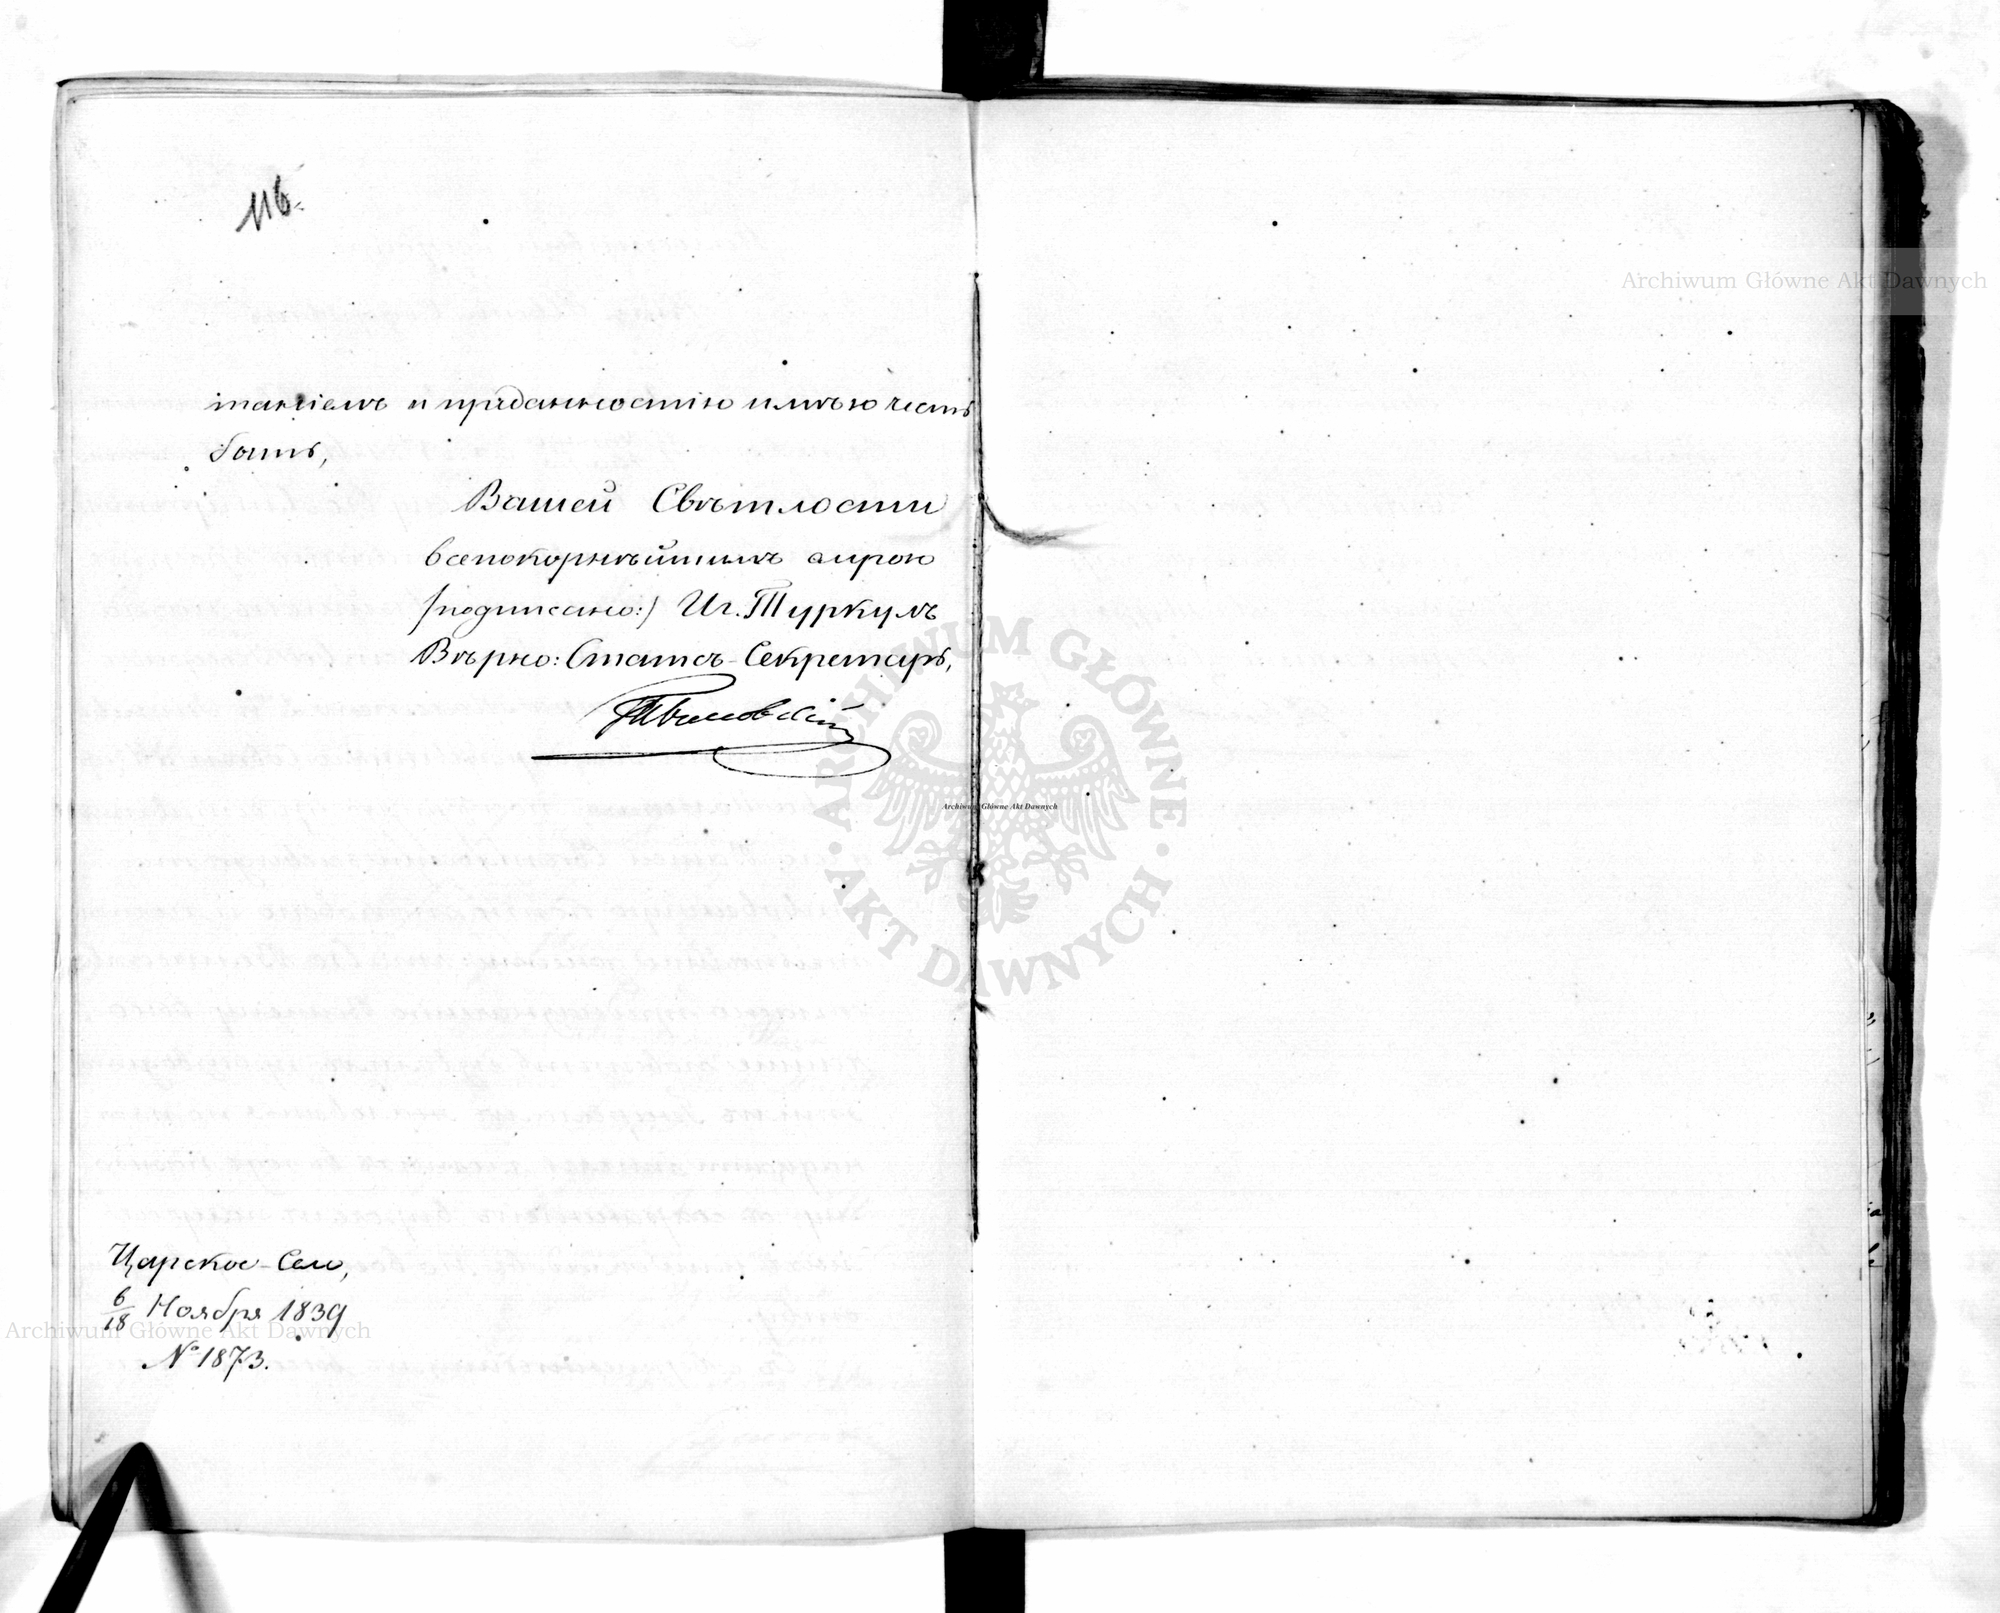 116.
таніемъ и преданностію имѣю честь
быть,
Вашей Свѣтлости
всепокорнѣйшимъ слугою
/подписано:/ Иг. Туркулъ
Вѣрно: Статсъ-Секретарь,
Царское-Село,
6/18 Ноября 1839
№ 1873.
Archiwum Główne Akt Dawnych
Archiwum Główne Akt Dawnych
Archiwum Główne Akt Dawnych
ARCHIWUM GŁÓWNE · AKT DAWNYCH ·